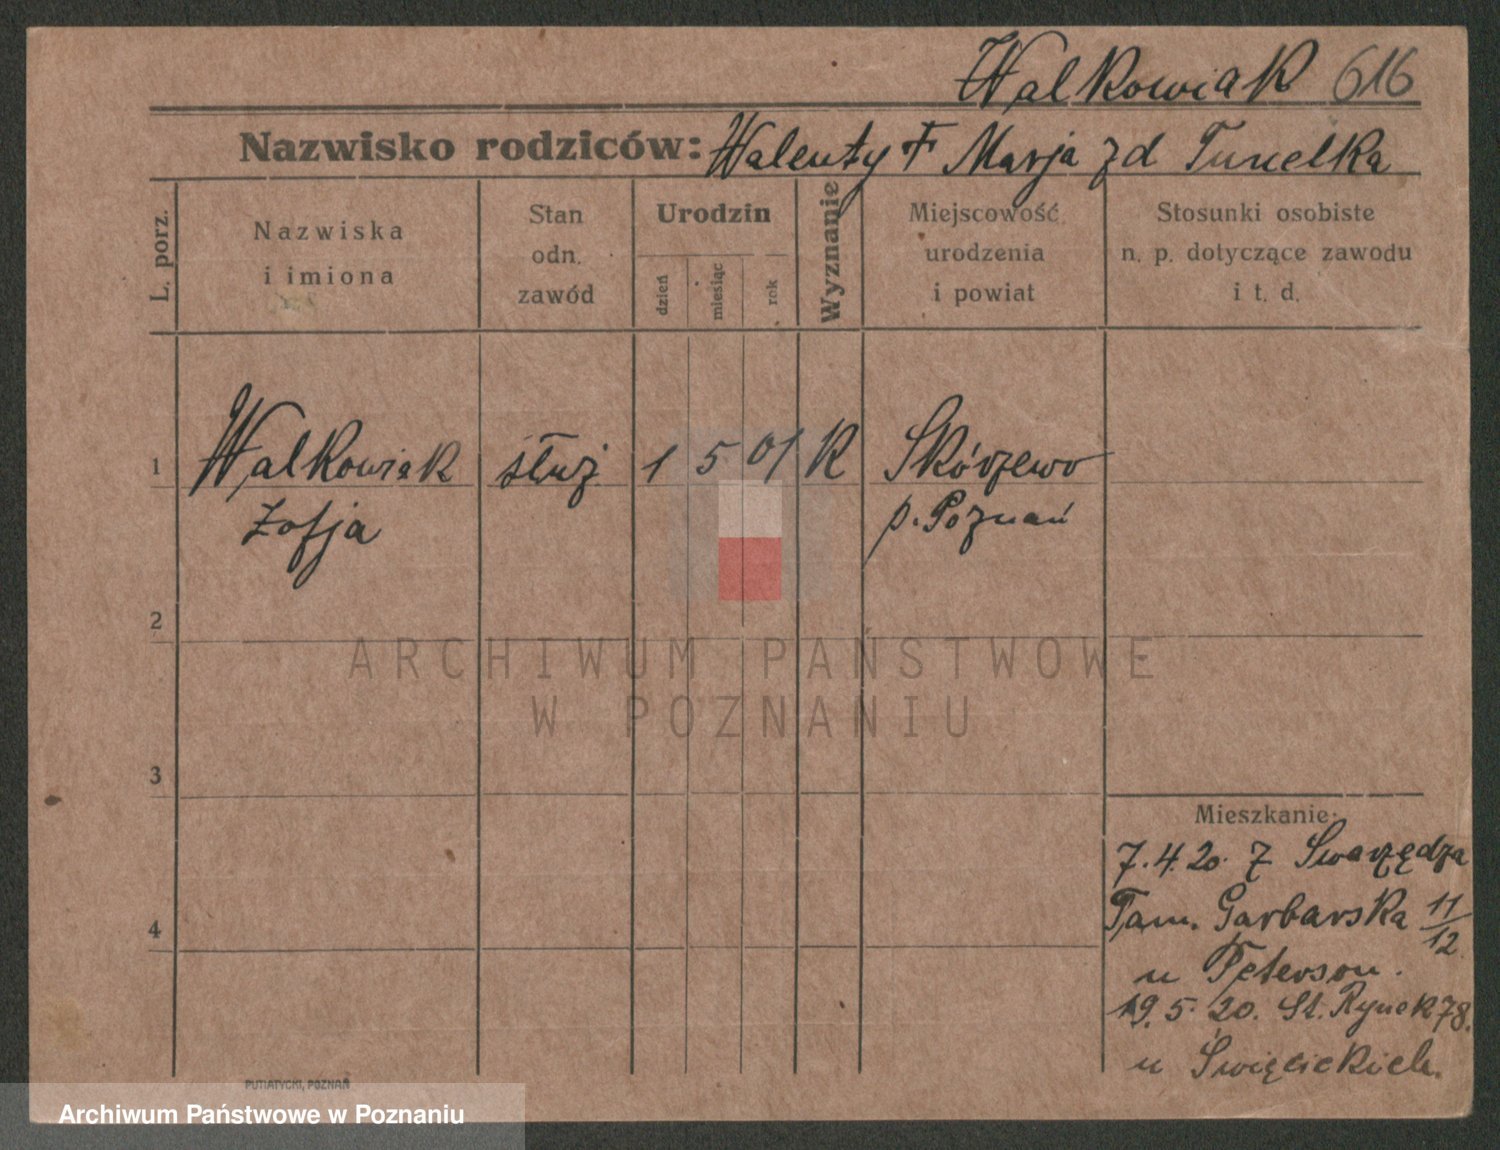 Walkowiak 616
Nazwisko rodziców: Walenty † Marja zd Tunelka
L. porz.
Nazwiska
i imiona
Stan
odn.
zawód
Urodzin
dzień
miesiąc
rok
Wyznanie
Miejscowość
urodzenia
i powiat
Stosunki osobiste
n. p. dotyczące zawodu
i t. d.
1 Walkowiak służ 1 5 01 K Skórzewo
Zofja p. Poznań
2
ARCHIWUM PAŃSTWOWE
W POZNANIU
3
Mieszkanie:
7.4.20. z Swarzędza
4
Tam. Garbarska 11/12.
u Peterson.
19.5.20. St. Rynek 78.
u Święcickich.
PUTIATYCKI, POZNAŃ
Archiwum Państwowe w Poznaniu